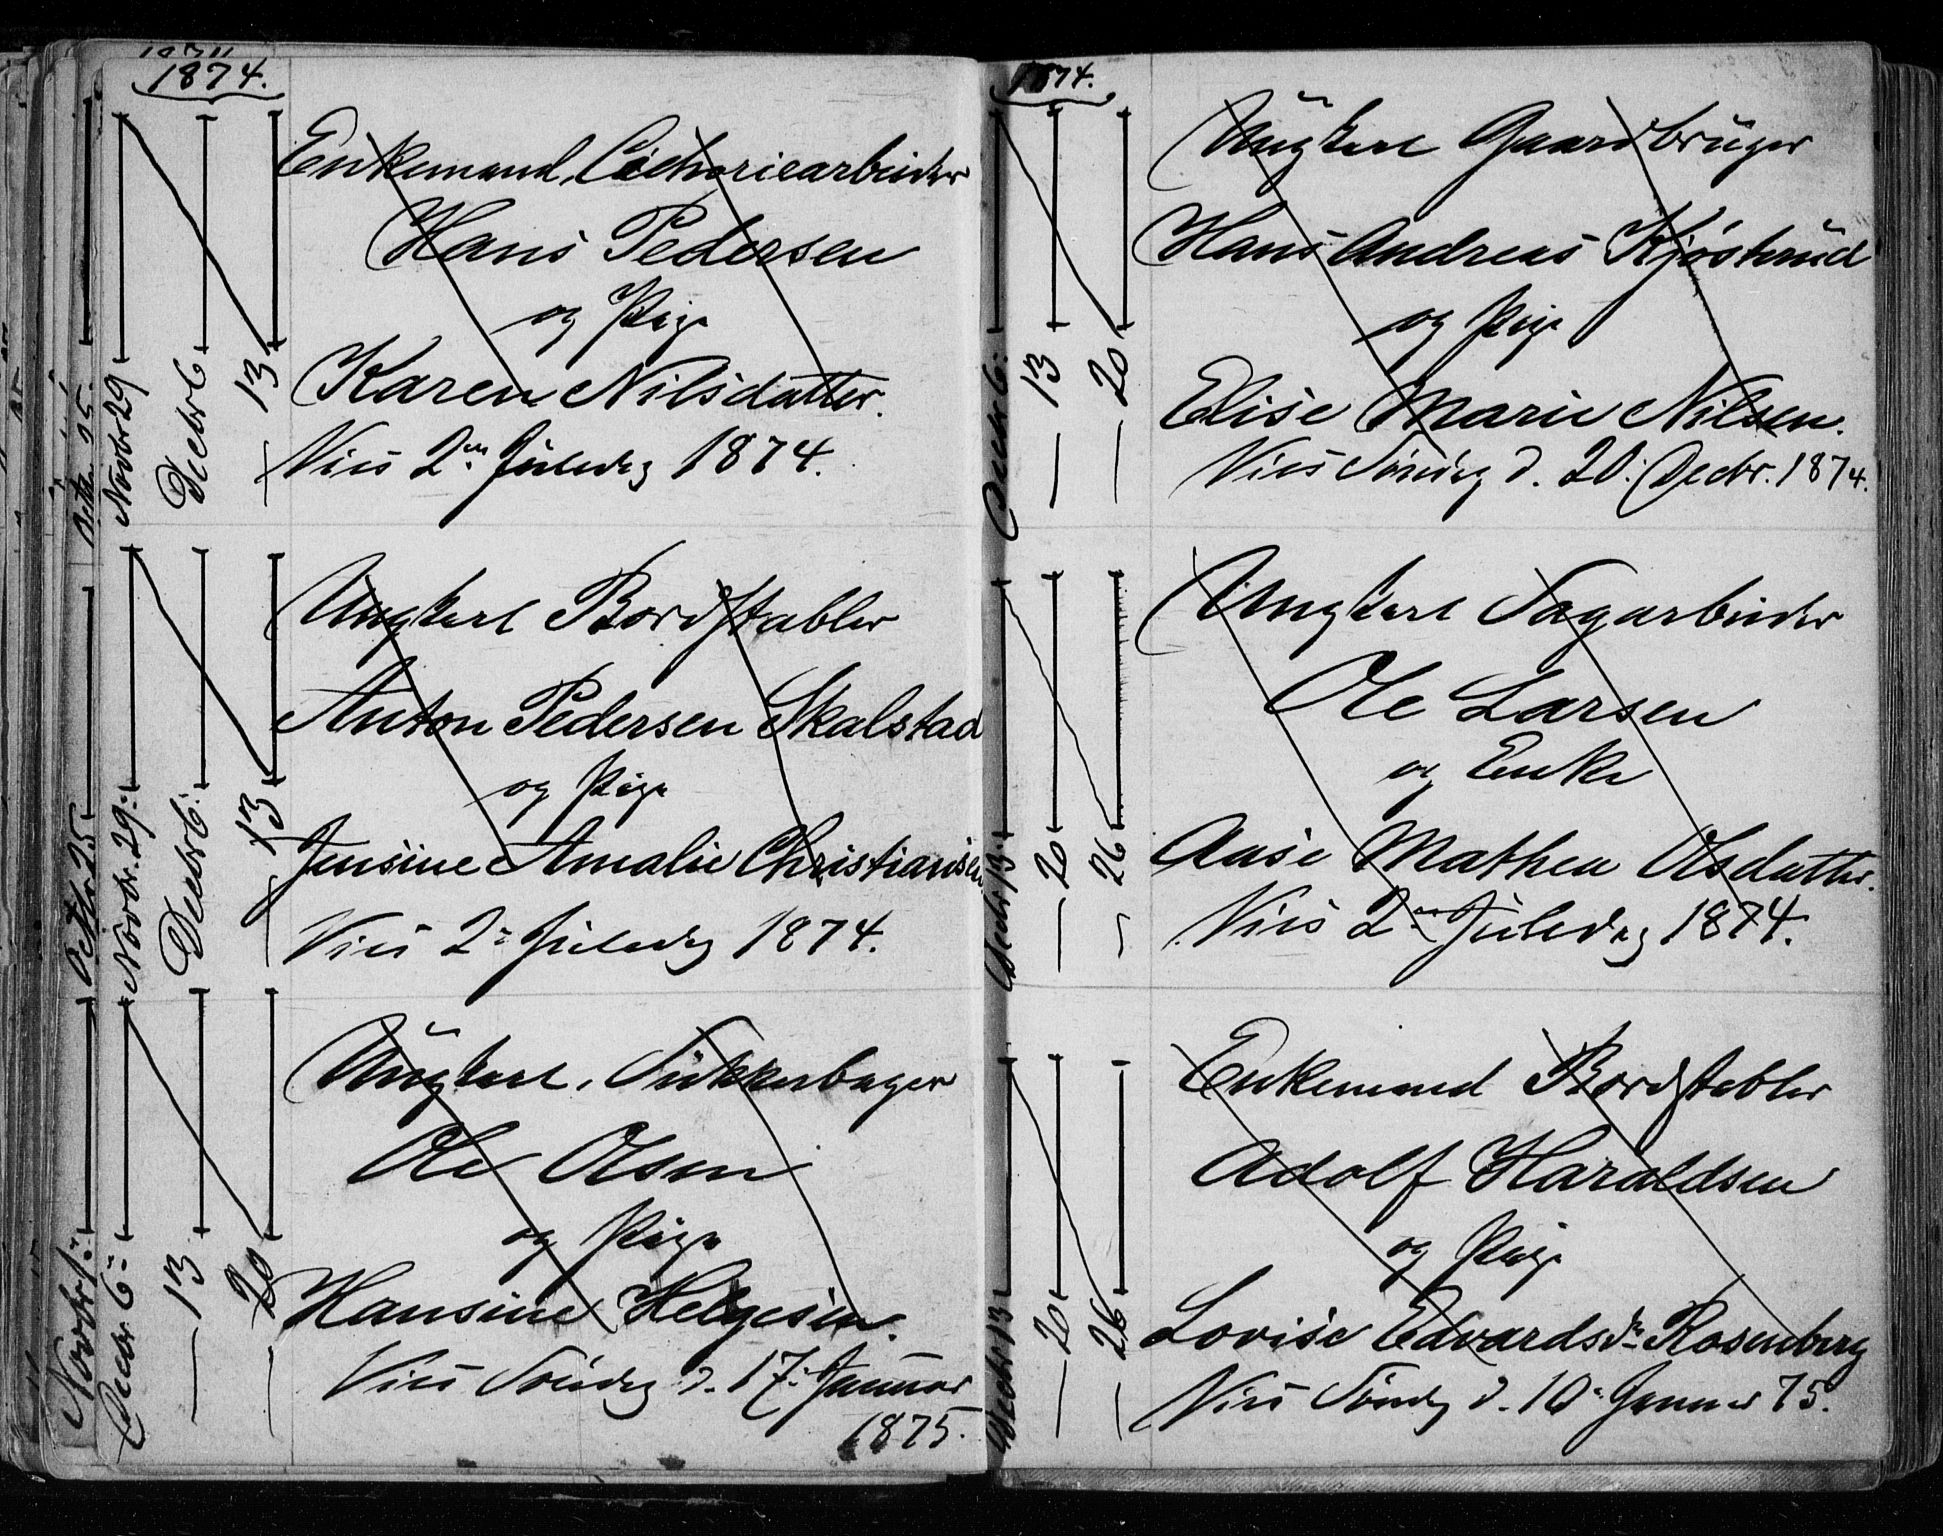 1874.
Octbr 25.
Novbr 29
Decbr 6
— 13
Enkemand, Cichoriearbeider
Hans Pedersen
og Pige
Karen Nilsdatter.
Vies 2den Juledag 1874.
Octbr 25
Novbr. 29:
Decbr 6:
— 13
Ungkarl Bordstabler
Anton Pedersen Skalstad
og Pige
Jensine Amalie Christiansen
Vies 2: Juledag 1874.
Novbr 1:
Decbr 6:
— 13
— 20
Ungkarl, Sukkerbager
Ole Olsen
og Pige
Hansine Helgesen.
Vies Søndag d. 17: Januar
1875.
1874.
Decbr 6:
— 13
— 20
Ungkarl Gaardbruger
Hans Andreas Kjøsterud
og Pige
Elise Marie Nilsen.
Vies Søndag d. 20: Decbr. 1874.
Decbr 13:
— 20
— 26
Ungkarl Sagarbeider
Ole Larsen
og Enke
Anse Mathea Olsdatter.
Vies 2den Juledag 1874.
Decbr 13
— 20
— 26
Enkemand Bordstabler
Adolf Haraldsen
og Pige
Lovise Edvardsdr. Rosenberg
Vies Søndag d. 10: Januar 75.